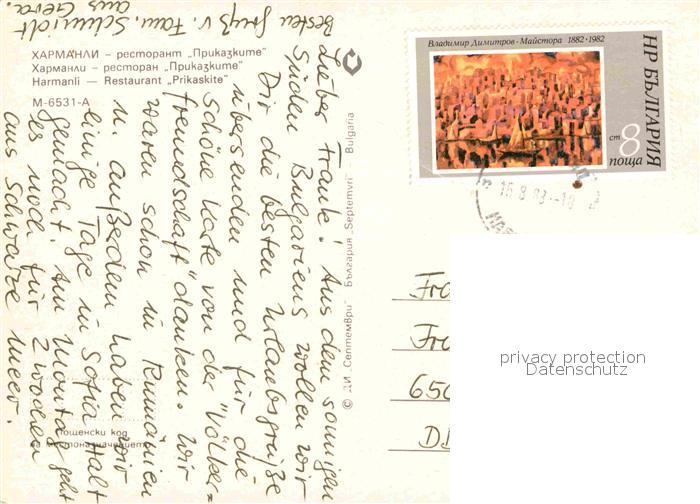 Besten Gruß v. Fam. Schmidt
aus Gera.
ХАРМАНЛИ – ресторант „Приказките"
Харманли – ресторан „Приказките"
Harmanli — Restaurant "Prikaskite"
М-6531-А
Lieber Frank! Aus dem sonnigen
Süden Bulgariens wollen wir
Dir die besten Urlaubsgrüße
übersenden und für die
schöne Karte von der "Völker=
freundschaft" danken. Wir
waren schon in Rumänien
u. außerdem haben wir
einige Tage in Sofia Halt
gemacht. Am Montag geht
es noch für 2 Wochen
ans Schwarze Meer.
Пощенски код
на местоназначението
© ДИ „Септември" България „Septemvri" Bulgaria
Владимир Димитров - Майстора 1882 - 1982
НР БЪЛГАРИЯ
ст 8
поща
15.8.83.-18
Fra
Fra
650
DD
privacy protection
Datenschutz